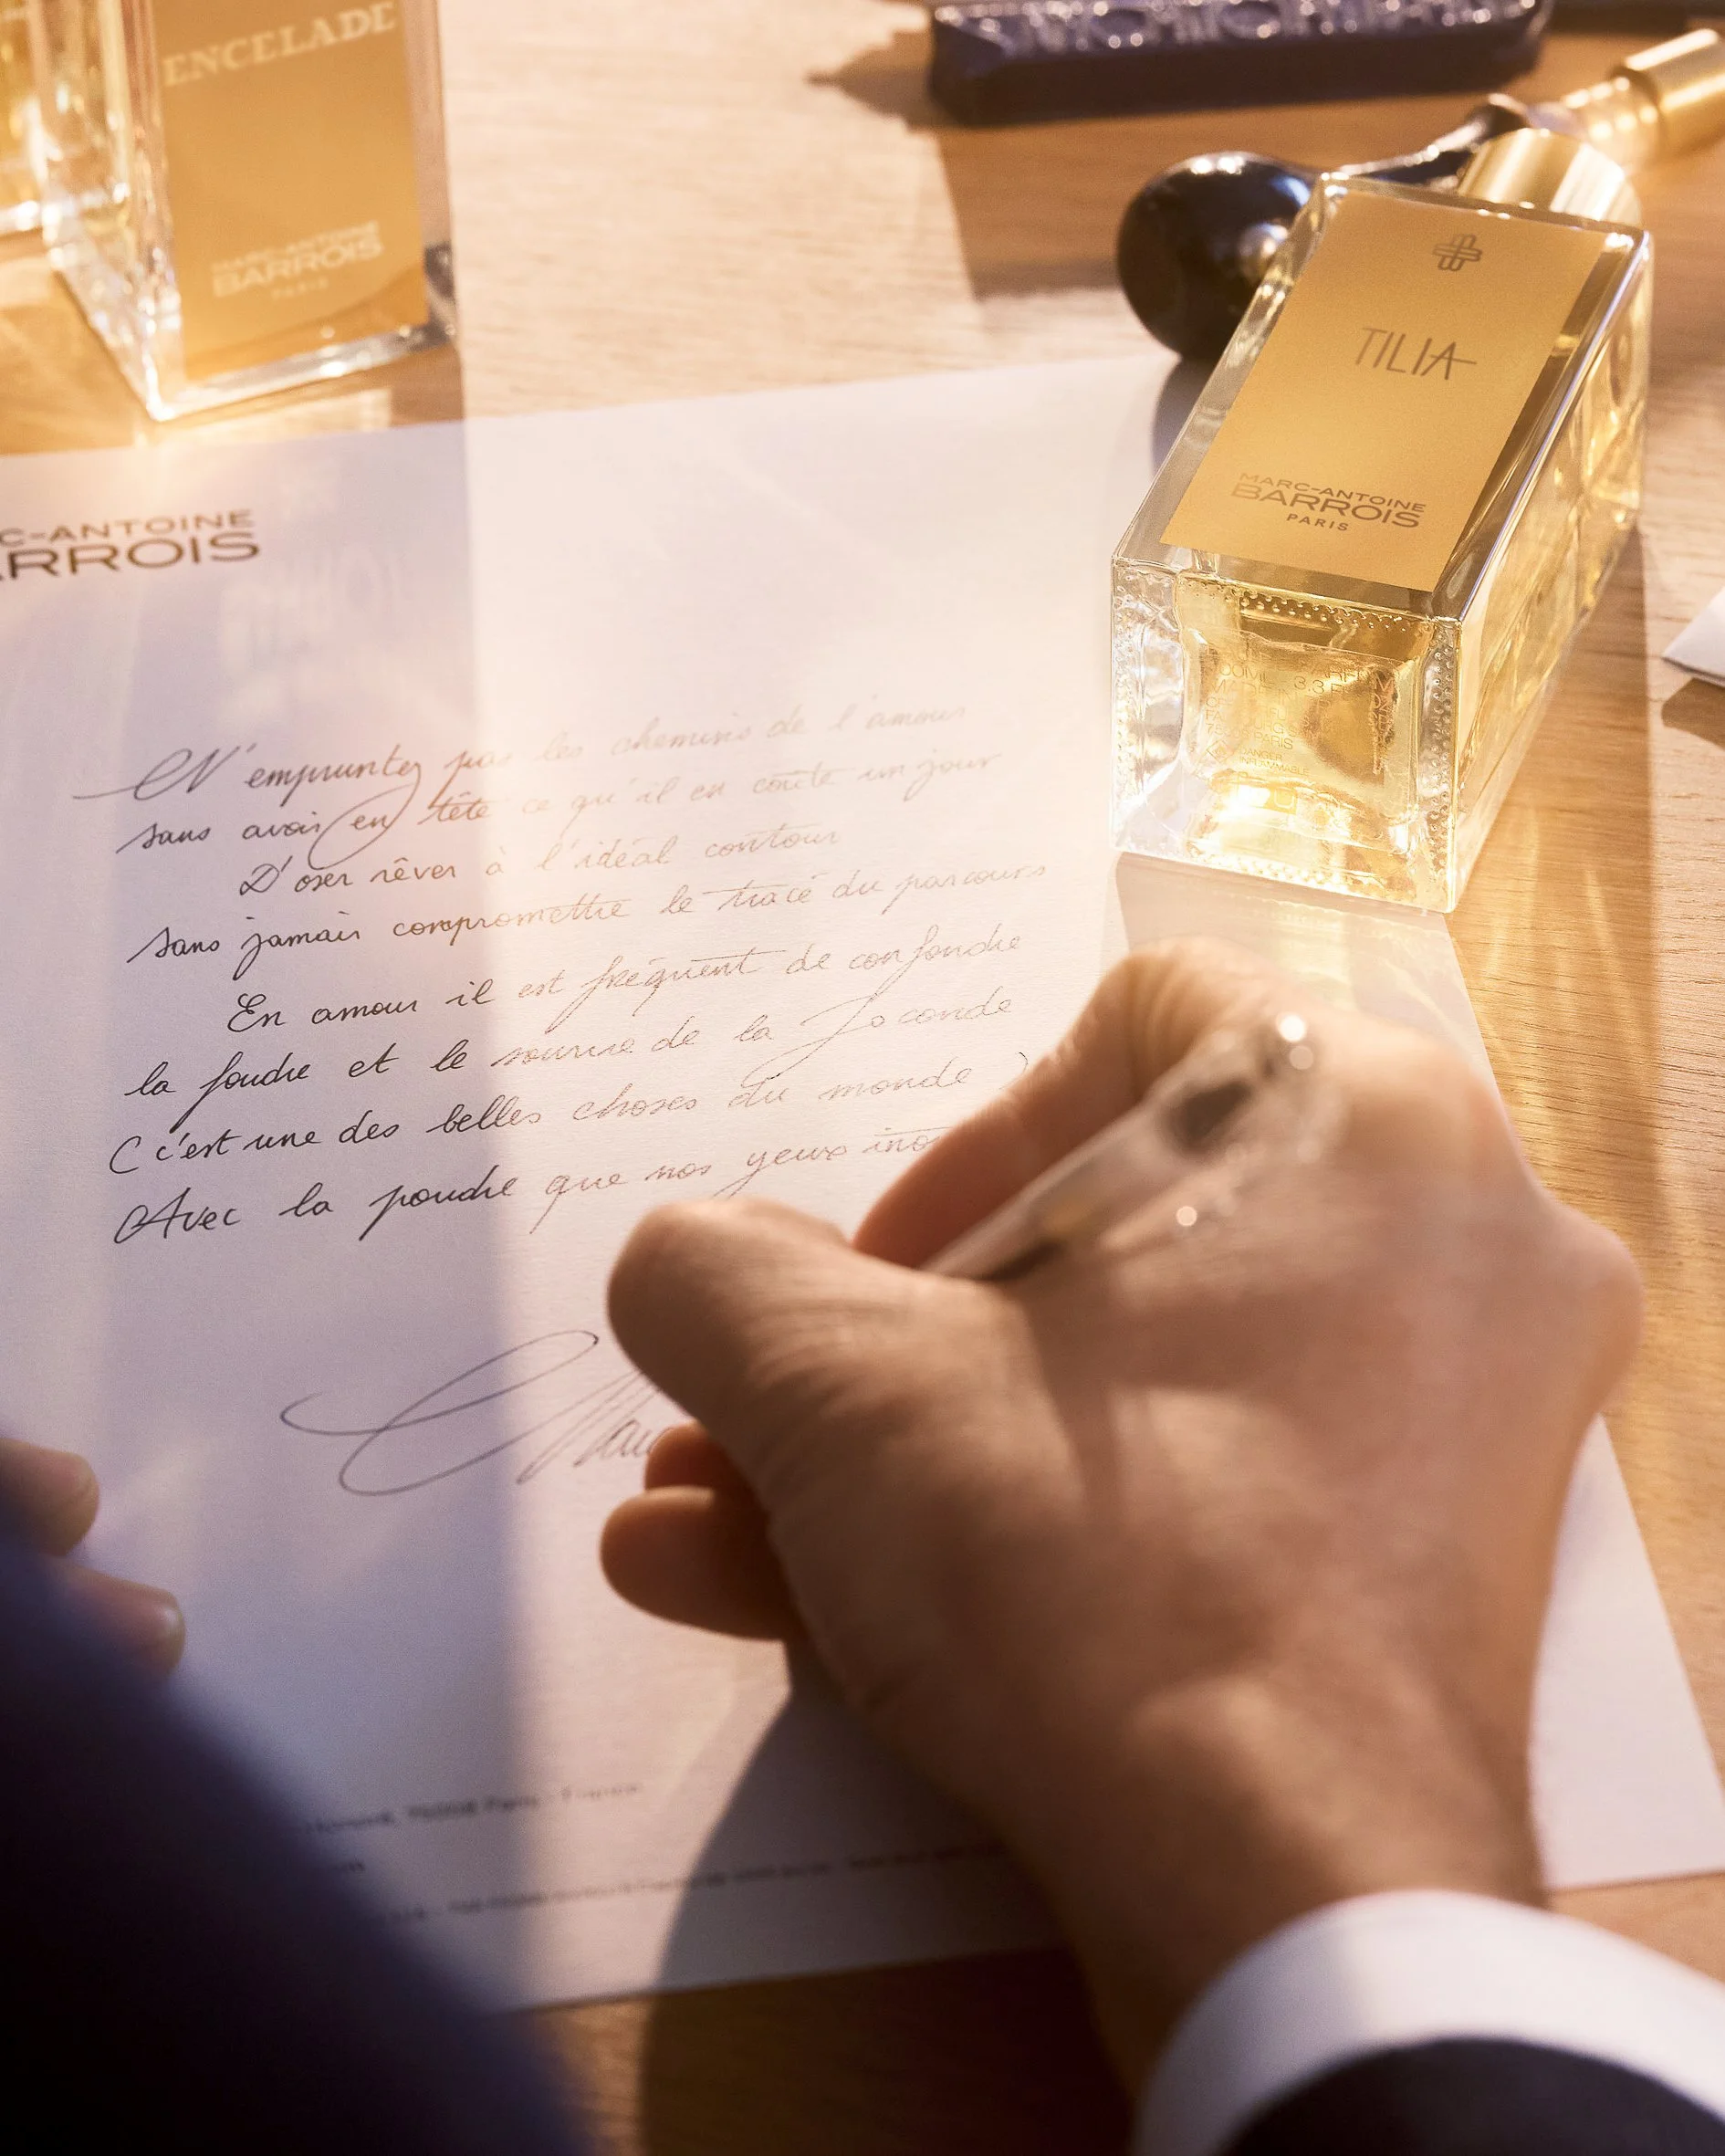 ENCELADE
MARC-ANTOINE
BARROIS
PARIS
TILIA
MARC-ANTOINE
BARROIS
PARIS
C-ANTOINE
ARROIS
N'empruntez pas les chemins de l'amour
sans avoir en tête ce qu'il en coûte un jour
D'oser rêver à l'idéal contour
sans jamais compromettre le tracé du parcours
En amour il est fréquent de confondre
la foudre et le sourire de la Joconde
(c'est une des belles choses du monde)
Avec la poudre que nos yeux ino
Marc
Paris - France